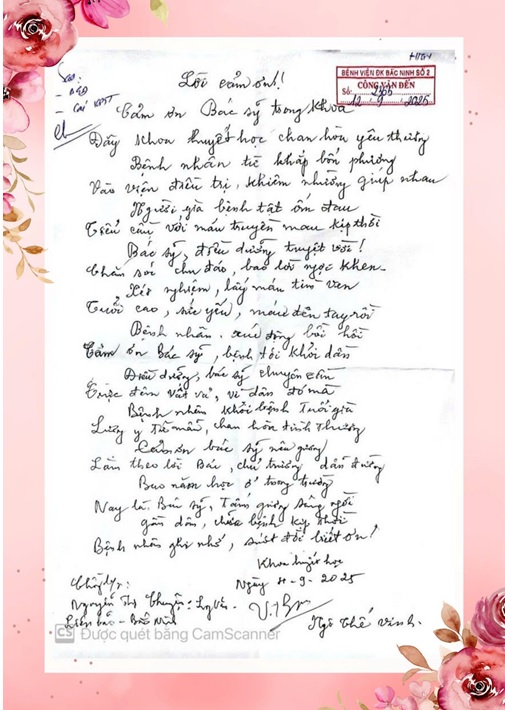 Lời cảm ơn!
BỆNH VIỆN ĐK BẮC NINH SỐ 2
CÔNG VĂN ĐẾN
Số:
12 - 9 - 2025
Cảm ơn Bác sỹ trong khoa
Đây khoa huyết học chan hòa yêu thương
Bệnh nhân từ khắp bốn phương
Vào viện điều trị, khiêm nhường giúp nhau
Người già bệnh tật ốm đau
Tiểu cầu với máu truyền mau kịp thời
Bác sỹ, điều dưỡng tuyệt vời!
Chăm sóc chu đáo, bao lời ngợi khen.
Xét nghiệm, lấy máu tìm ven
Tuổi cao, sức yếu, máu đến tay rồi
Bệnh nhân xúc động bồi hồi
Cảm ơn Bác sỹ, bệnh tôi khỏi dần
Điều dưỡng, bác sỹ chuyên cần
Trực đêm vất vả, vì dân đó mà
Bệnh nhân khỏi bệnh tuổi già
Lương y từ mẫu, chan hòa tình thương
Cảm ơn bác sỹ nêu gương
Làm theo lời Bác, chủ trương dẫn đường
Bao năm học ở trong trường
Nay là Bác sỹ, Tấm gương sáng ngời
gần dân, chữa bệnh kịp thời
Bệnh nhân ghi nhớ, suốt đời biết ơn!
Khoa huyết học
Ngày 11-9-2025
Nguyễn Thị
Bắc Ninh
Ngô Thế Vinh.
CS Được quét bằng CamScanner